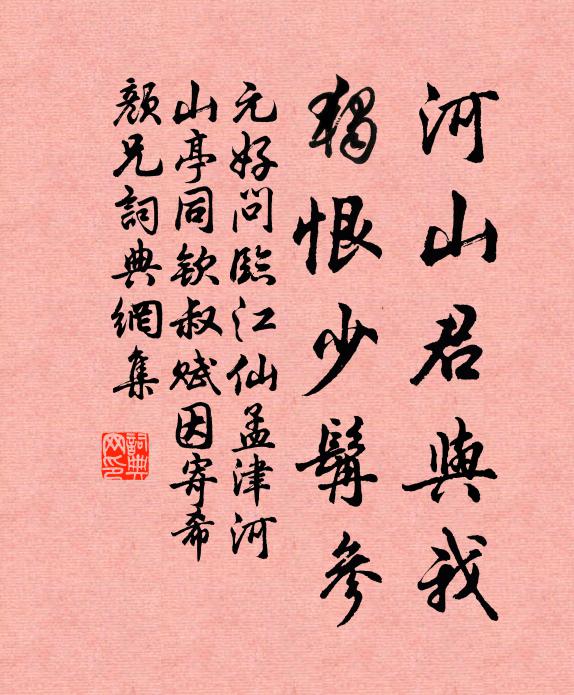 河山君與我
獨恨少髯參
元好問臨江仙孟津河
山亭同欽叔賦因寄希
顏兄詞典網集
詞典
网印